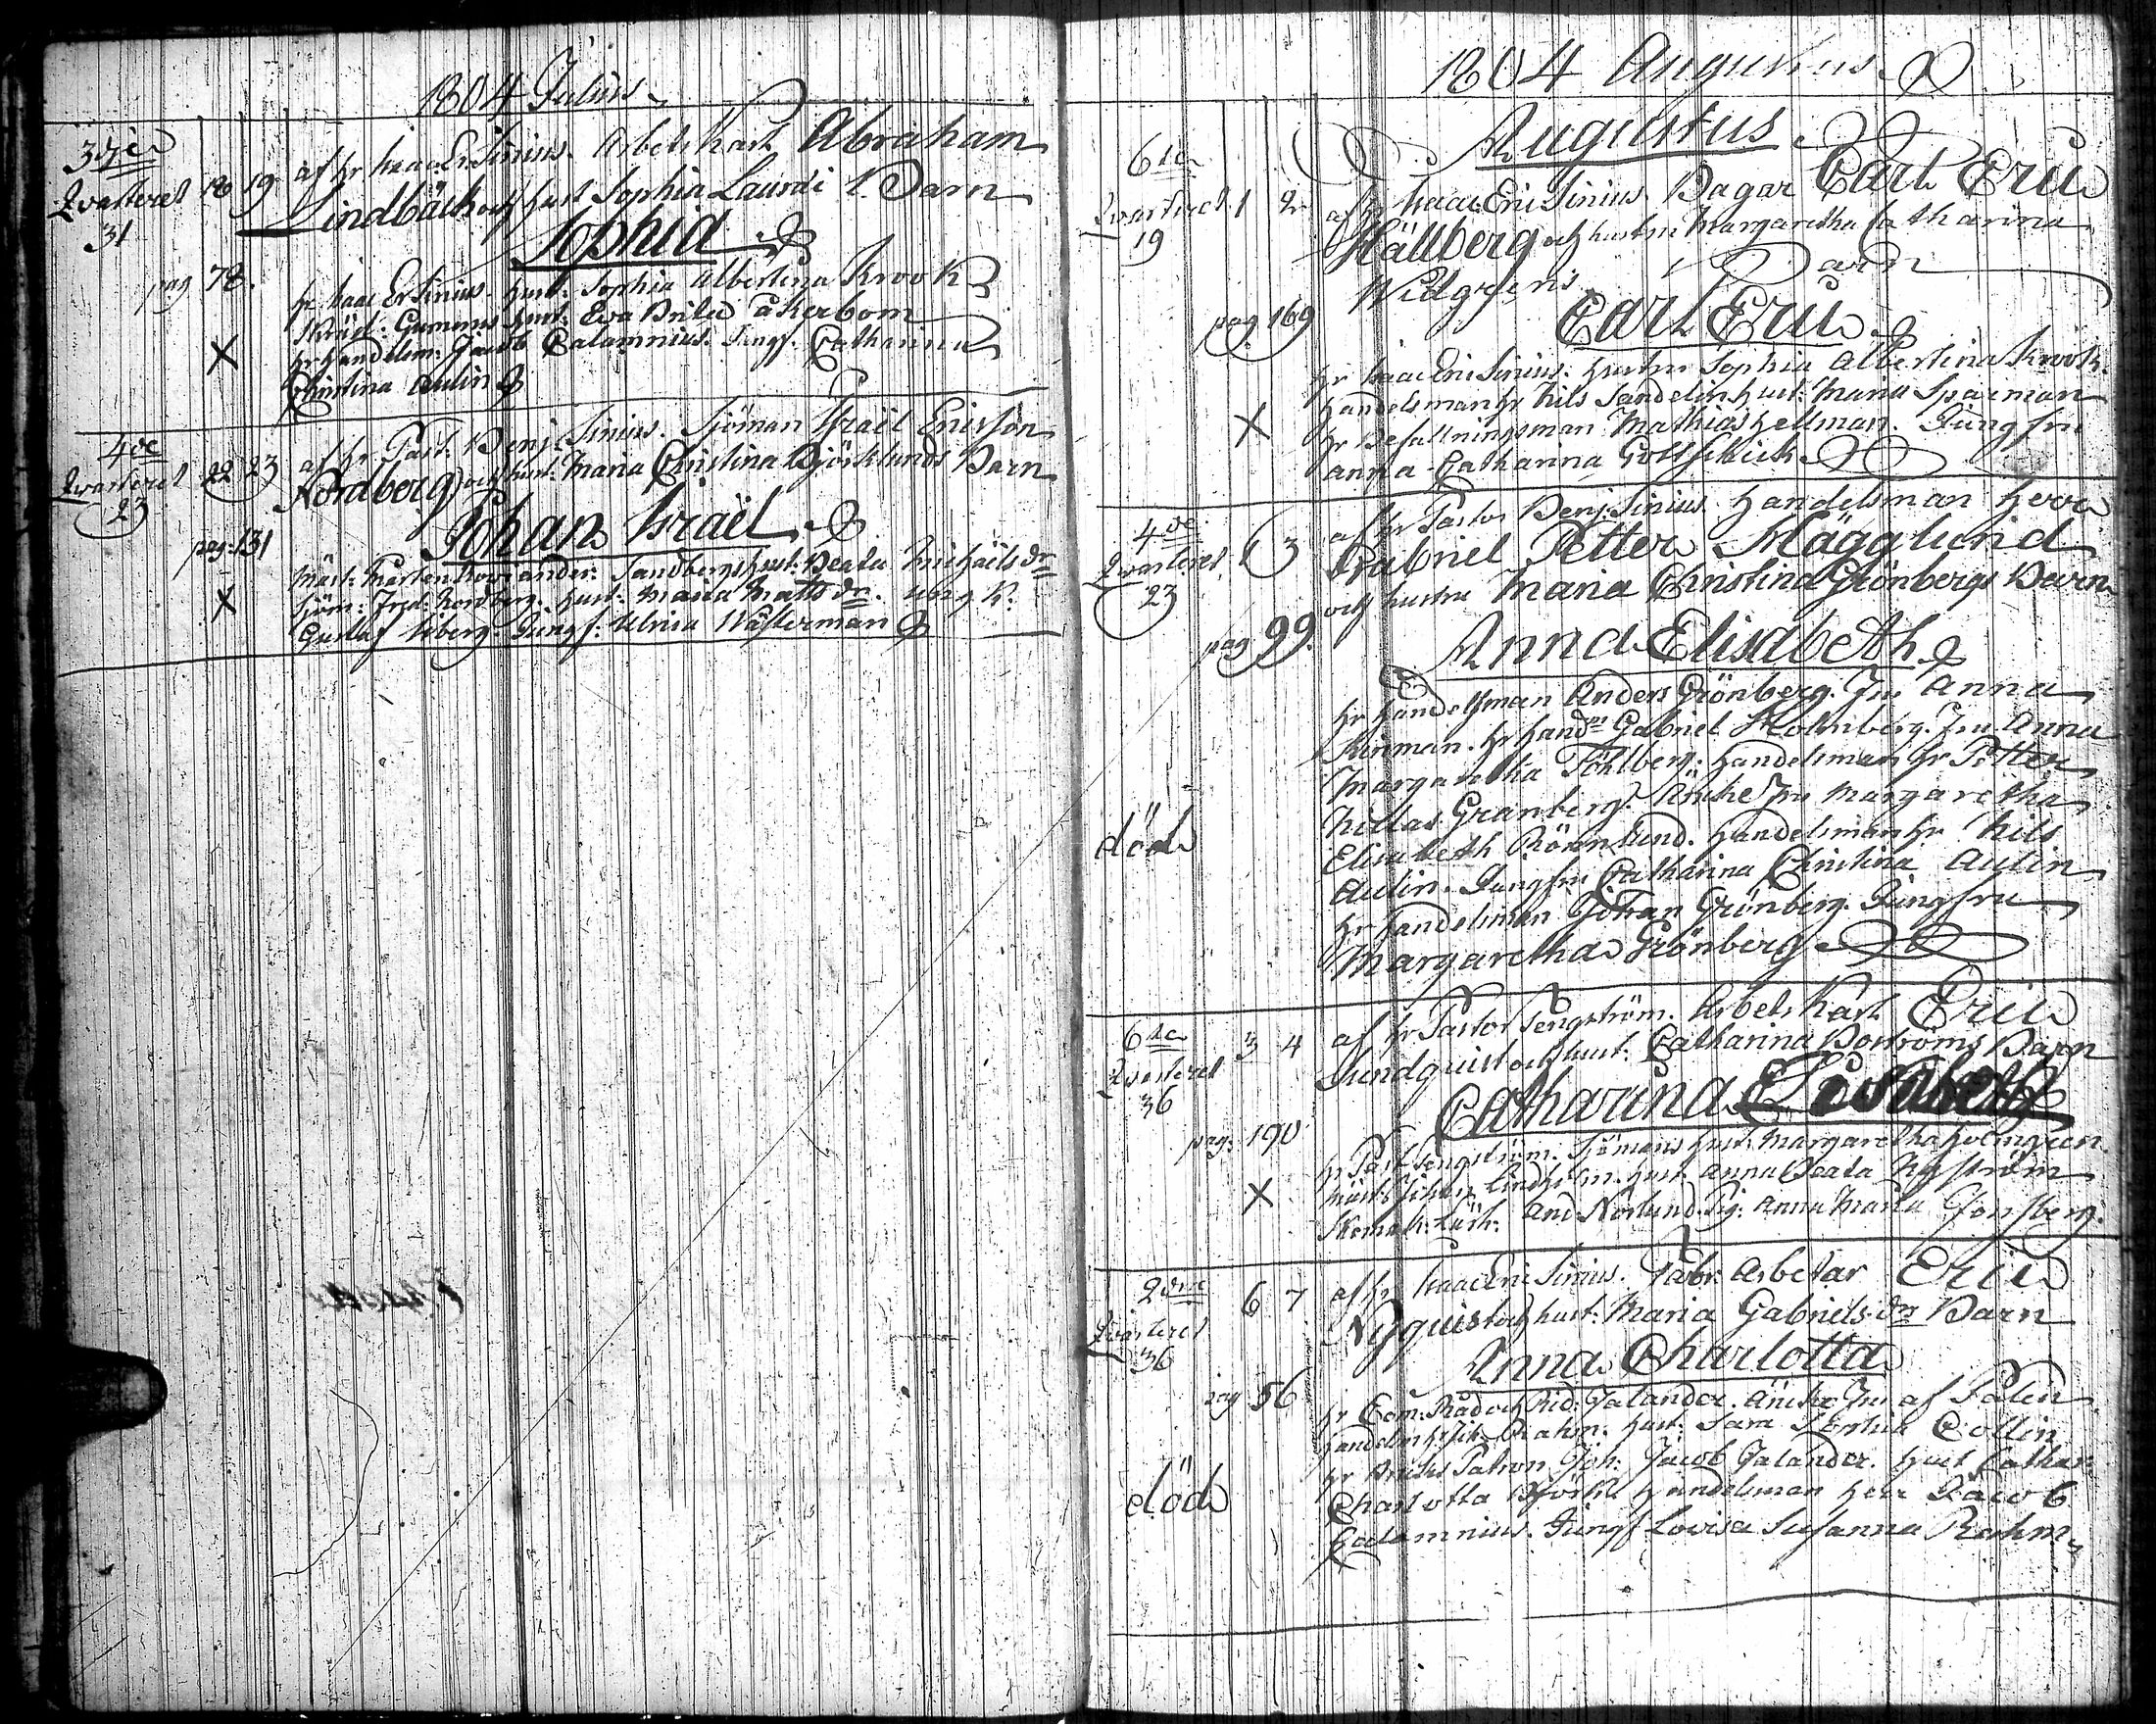 1804 Julius
3dje
Qvarteret
31
18 19
af hr Isaac Er Sinius. Arbets Karl Abraham
Lindbäck och hust Sophia Laurdi Barn
Sophia
pag 78.
hr Isaac Er Sinius. hust: Sophia Albertina Krook
Skräd: Gummerus hust: Eva Brita Åkerbom
X
hr handelsm: Jacob Calamnius. Jungf. Catharina
Christina Aulin
4de
Qvarteret
23
22 23
af hr Past: Benj: Sinius. Sjöman Israël Ericsson
Nordberg och hust: Maria Christina Björklunds Barn
pag: 131
Johan Israël
Sandbergs hust: Beata Michaelsdr
X
Sjöm: Fred: Nordberg. hust: Maria Mattsdr. ung K:
Gustaf Uberg. Jungf: Ulrica Wästerman
1804 Augustus
Augustus
6te
Qvarteret
19
1 2
af hr Isaac Eric Sinius. Bagar Carl Eric
Hällberg och hustru Margaretha Catharina
Widgrens Barn
pag. 169
Carl Eric
hr Isaac Eric Sinius. hustru Sophia Albertina Krook.
handelsman hr Nils Sandelin hust: Maria Sparman
X
hr Befallningsman Mathias Hellman. Jungfru
Anna Catharina Gottschick
4de
Qvarteret
23
1 3
af hr Pastor Benj: Sinius handelsman herr
Gabriel Petter Hägglund
och hustru Maria Christina Grönbergs Barn
pag 99.
Anna Elisabeth
hr handelsman Anders Grönberg. Fru Anna
Kinman. hr handm Gabriel Holmberg. Fru Anna
Margaretha Föhlberg. handelsman hr Petter
Niclas Granberg. Änke Fru Margaretha
död
Elisabeth Rönnlund. handelsman hr Nils
Aulin. Jungfru Catharina Christina Aulin
hr handelsman Johan Grönberg. Jungfru
Margaretha Grönberg
6te
Qvarteret
36
3 4
af hr Pastor Tengström. Arbets Karl Eric
Sundquist och hust: Catharina Boströms Barn
pag: 190
Catharina Elisabeth
hr Past Tengström. Sjömans hust: Margaretha Holmgren
X
hust: Anna Beata Nyström
And: Norlund. Pig: Anna Maria Forssberg.
2dra
Qvarteret
36
6 7
af hr Isaac Eric Sinius. Fabr: Arbetar Eric
Nyquist och hust: Maria Gabrielsdr Barn
Anna Charlotta
pag 56
hr Com: Råd och Rid: Falander. Änke Fru af Palén.
Rahm. hust: Sara Sophia Collin
hr Bruks Patron Joh: Jacob Falander. hust Cathar:
död
Charlotta Björk. handelsman herr Jacob
Calamnius. Jungf Lovisa Susanna Rahm